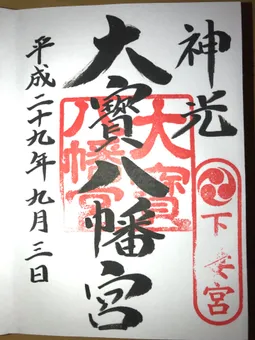 神光
下
宮
大寶八幡宮
大寳
八幡宮
平成二十九年九月三日